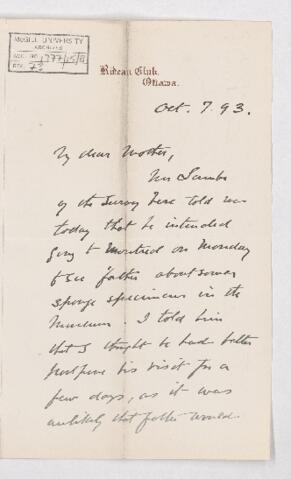 McGILL UNIVERSITY
ARCHIVES
ACC. NO. 1377/15/
REF. 73
Rideau Club,
Ottawa.
Oct. 7. 93.
My dear Mother,
Mr Lambe
of the Survey here told me
today that he intended
going to Montreal on Monday
to see father about some
sponge specimens in the
Museum. I told him
that I thought he had better
postpone his visit for a
few days, as it was
unlikely that father would